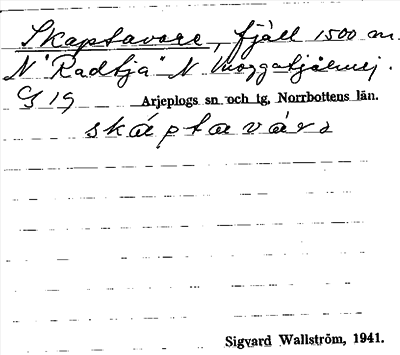 Skaptavare, fjäll 1500 m.
N "Radtja" N
G 19 Arjeplogs sn och tg, Norrbottens län.
skáptavárɛ
Sigvard Wallström, 1941.